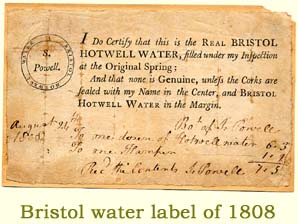 S.
Powell.
I Do Certify that this is the REAL BRISTOL
HOTWELL WATER, filled under my Inspection
at the Original Spring:
And that none is Genuine, unless the Corks are
sealed with my Name in the Center, and BRISTOL
HOTWELL WATER in the Margin.
August 24
Bot of S. Powell
one dozen of Hotwell water 6..3
one Hamper
Recd the Contents S Powell 7..5
Bristol water label of 1808